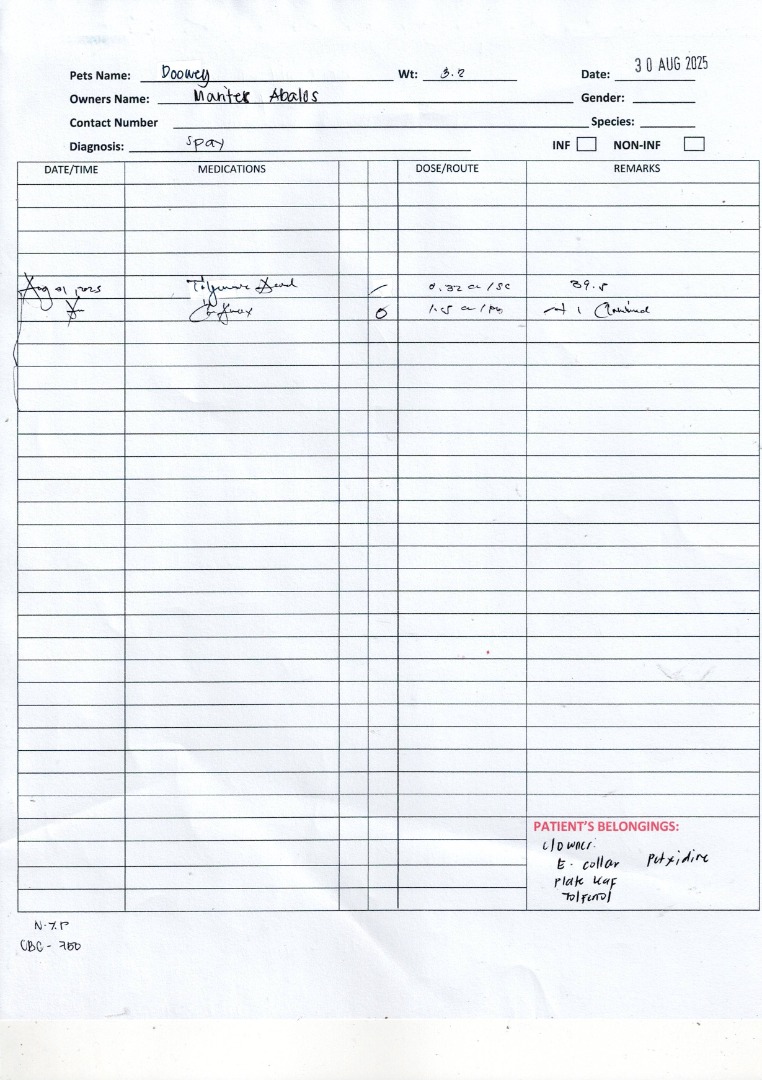 30 AUG 2025
Pets Name: Doowey Wt: 3.2 Date:
Owners Name: Marites Abalos Gender:
Contact Number Species:
Diagnosis: spay INF NON-INF
DATE/TIME MEDICATIONS DOSE/ROUTE REMARKS
Aug 31, 2025 0.32 cc / SC 39.5
1.5 cc / PO
PATIENT'S BELONGINGS:
c/o owner:
E-collar Petxidine
Plate
Tolfenol
CBC - 750